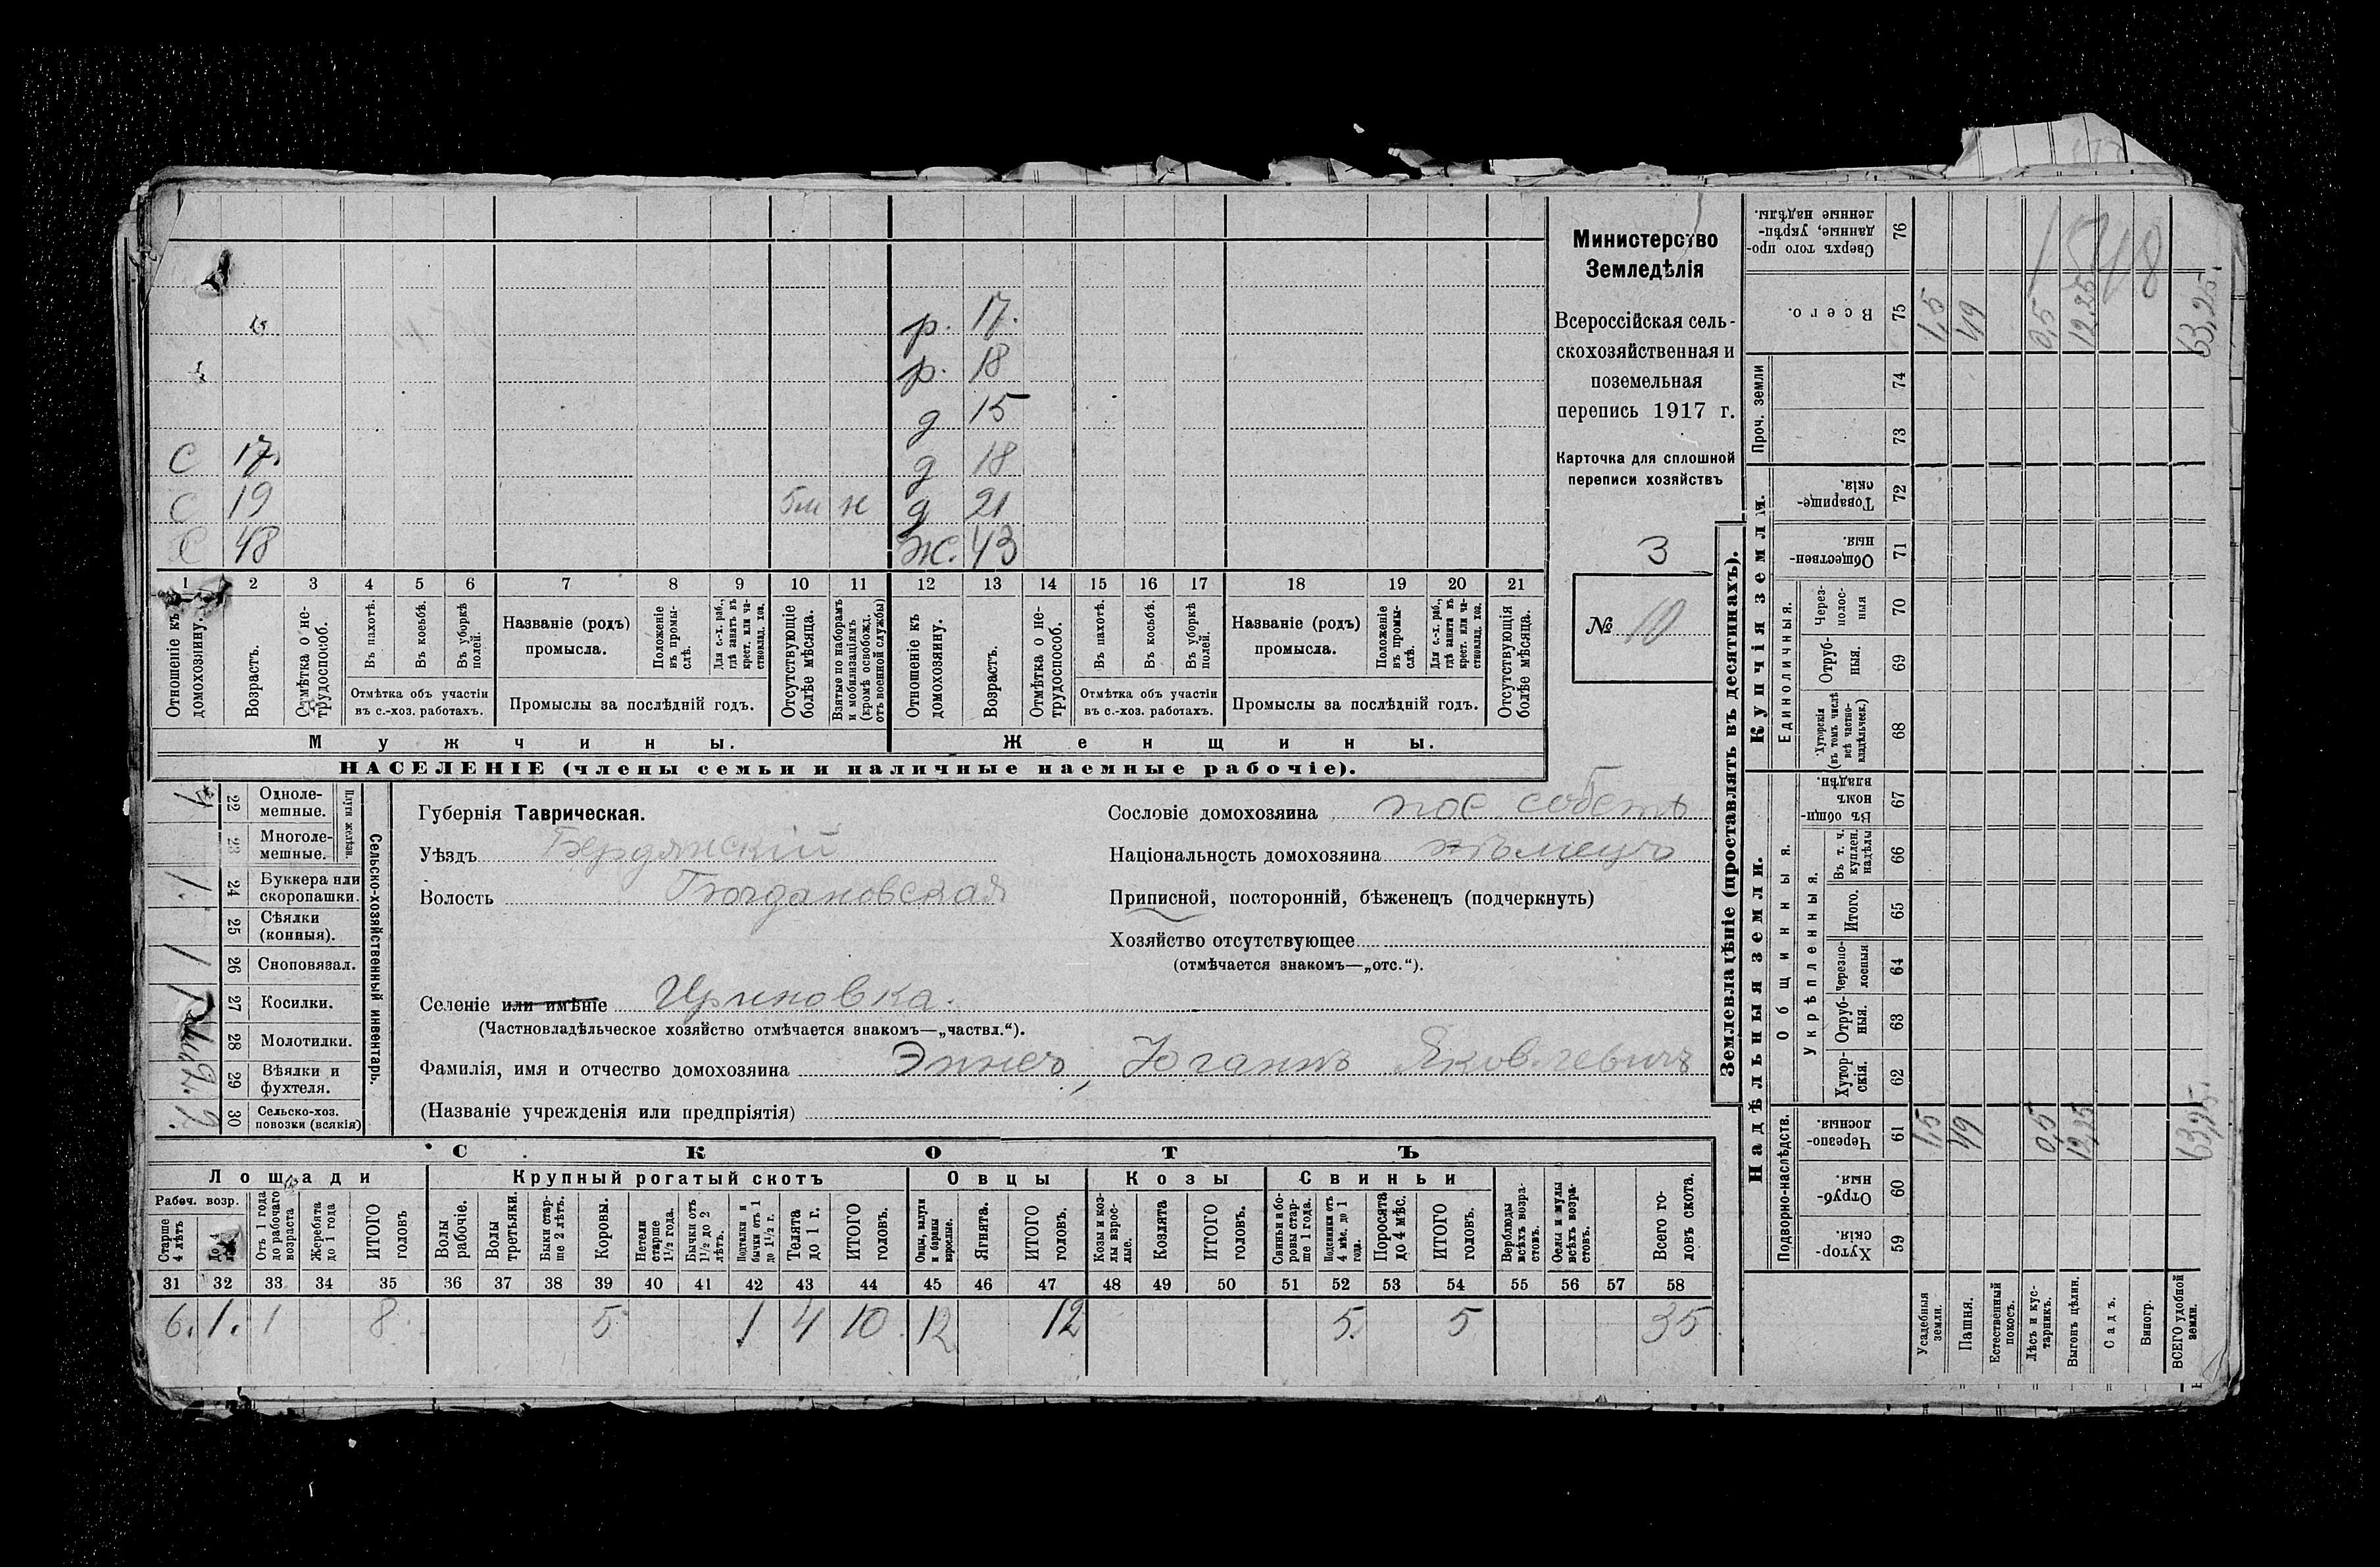 р. 17.
р. 18
д 15
С 17. д 18
С 19 5м н д 21
С 48 ж. 43
1 2 3 4 5 6 7 8 9 10 11 12 13 14 15 16 17 18 19 20 21
Отношеніе къ домохозяину.
Возрастъ.
Отмѣтка о не-трудоспособ.
Въ пахотѣ.
Въ косьбѣ.
Въ уборкѣ полей.
Отмѣтка объ участіи
въ с.-хоз. работахъ.
Названіе (родъ)
промысла.
Положеніе въ промы-слѣ.
Для с.-х. раб., гдѣ занятъ въ крест. или ча-стновлад. хоз.
Промыслы за послѣдній годъ.
Отсутствующіе болѣе мѣсяца.
Взятые по наборамъ и мобилизаціямъ (кромѣ освобожд. отъ военной службы)
Отношеніе къ домохозяину.
Возрастъ.
Отмѣтка о не-трудоспособ.
Въ пахотѣ.
Въ косьбѣ.
Въ уборкѣ полей.
Отмѣтка объ участіи
въ с.-хоз. работахъ.
Названіе (родъ)
промысла.
Положеніе въ промы-слѣ.
Для с.-х. раб., гдѣ занята въ крест. или ча-стновлад. хоз.
Промыслы за послѣдній годъ.
Отсутствующія болѣе мѣсяца.
Мужчины. Женщины.
НАСЕЛЕНІЕ (члены семьи и наличные наемные рабочіе).
Министерство
Земледѣлія
Всероссійская сель-
скохозяйственная и
поземельная
перепись 1917 г.
Карточка для сплошной
переписи хозяйствъ
3
№ 10
Сельско-хозяйственный инвентарь.
Плуги желѣзн.
22 Одноле-
мешные.
23 Многоле-
мешные.
1. 24 Буккера или
скоропашки.
25 Сѣялки
(конныя).
1 26 Сноповязал.
27 Косилки.
28 Молотилки.
29 Вѣялки и
фухтеля.
30 Сельско-хоз.
повозки (всякія)
Губернія Таврическая.
Уѣздъ Бердянскій
Волость Богдановская
Селеніе или имѣніе
(Частновладѣльческое хозяйство отмѣчается знакомъ—„частвл.“).
Фамилія, имя и отчество домохозяина Эннсъ, Іоганнъ Яковлевичъ
(Названіе учрежденія или предпріятія)
Сословіе домохозяина пос собств
Національность домохозяина нѣмецъ
Приписной, посторонній, бѣженецъ (подчеркнуть)
Хозяйство отсутствующее
(отмѣчается знакомъ—„отс.“).
СКОТЪ
Лошади Крупный рогатый скотъ Овцы Козы Свиньи
Рабоч. возр.
Старше 4 лѣтъ
До 4
Отъ 1 года до рабочаго возраста
Жеребята до 1 года
ИТОГО головъ
Волы рабочіе.
Волы третьяки.
Быки стар-ше 2 лѣтъ.
Коровы.
Нетели старше 1½ года.
Бычки отъ 1½ до 2 лѣтъ.
Подтелки и бычки отъ 1 до 1½ г.
Телята до 1 г.
ИТОГО головъ.
Овцы, валухи и бараны взрослые.
Ягнята.
ИТОГО головъ.
Козы и коз-лы взрос-лые.
Козлята
ИТОГО головъ.
Свиньи и бо-ровы стар-ше 1 года.
Подсвинки отъ 4 мѣс. до 1 года.
Поросята до 4 мѣс.
ИТОГО головъ.
Верблюды всѣхъ возра-стовъ.
Ослы и мулы всѣхъ возра-стовъ.
Всего го-ловъ скота.
31 32 33 34 35 36 37 38 39 40 41 42 43 44 45 46 47 48 49 50 51 52 53 54 55 56 57 58
6. 1. 1 8. 5 1 4 10. 12 12 5. 5 35
Землевладѣніе (проставлять въ десятинахъ).
Надѣльныя земли. Купчія земли.
Подворно-наслѣдств.
Общинныя.
Укрѣпленныя.
Единоличныя.
Проч. земли
Сверхъ того про-данные, укрѣп-ленные надѣлы. 76
Всего. 75 1,5 49 0,5 12,25 63,25.
1548
74
73
Товарище-скія. 72
Обществен-ныя. 71
Через-полос-ныя 70
Отруб-ныя. 69
Хуторскія (въ томъ числѣ всѣ частно-владѣльческ.) 68
Въ общи-номъ владѣн. 67
Въ т. ч. куплен. надѣлы 66
Итого. 65
Черезпо-лосныя 64
Отруб-ныя. 63
Хутор-скія. 62
Черезпо-лосныя. 61 1,5 49 0,5 12,25 63,25.
Отруб-ныя. 60
Хутор-скія. 59
Усадебныя земли.
Пашня.
Естественный покосъ.
Лѣсъ и кус-тарникъ.
Выгонъ цѣлин.
Садъ.
Виногр.
ВСЕГО удобной земли.